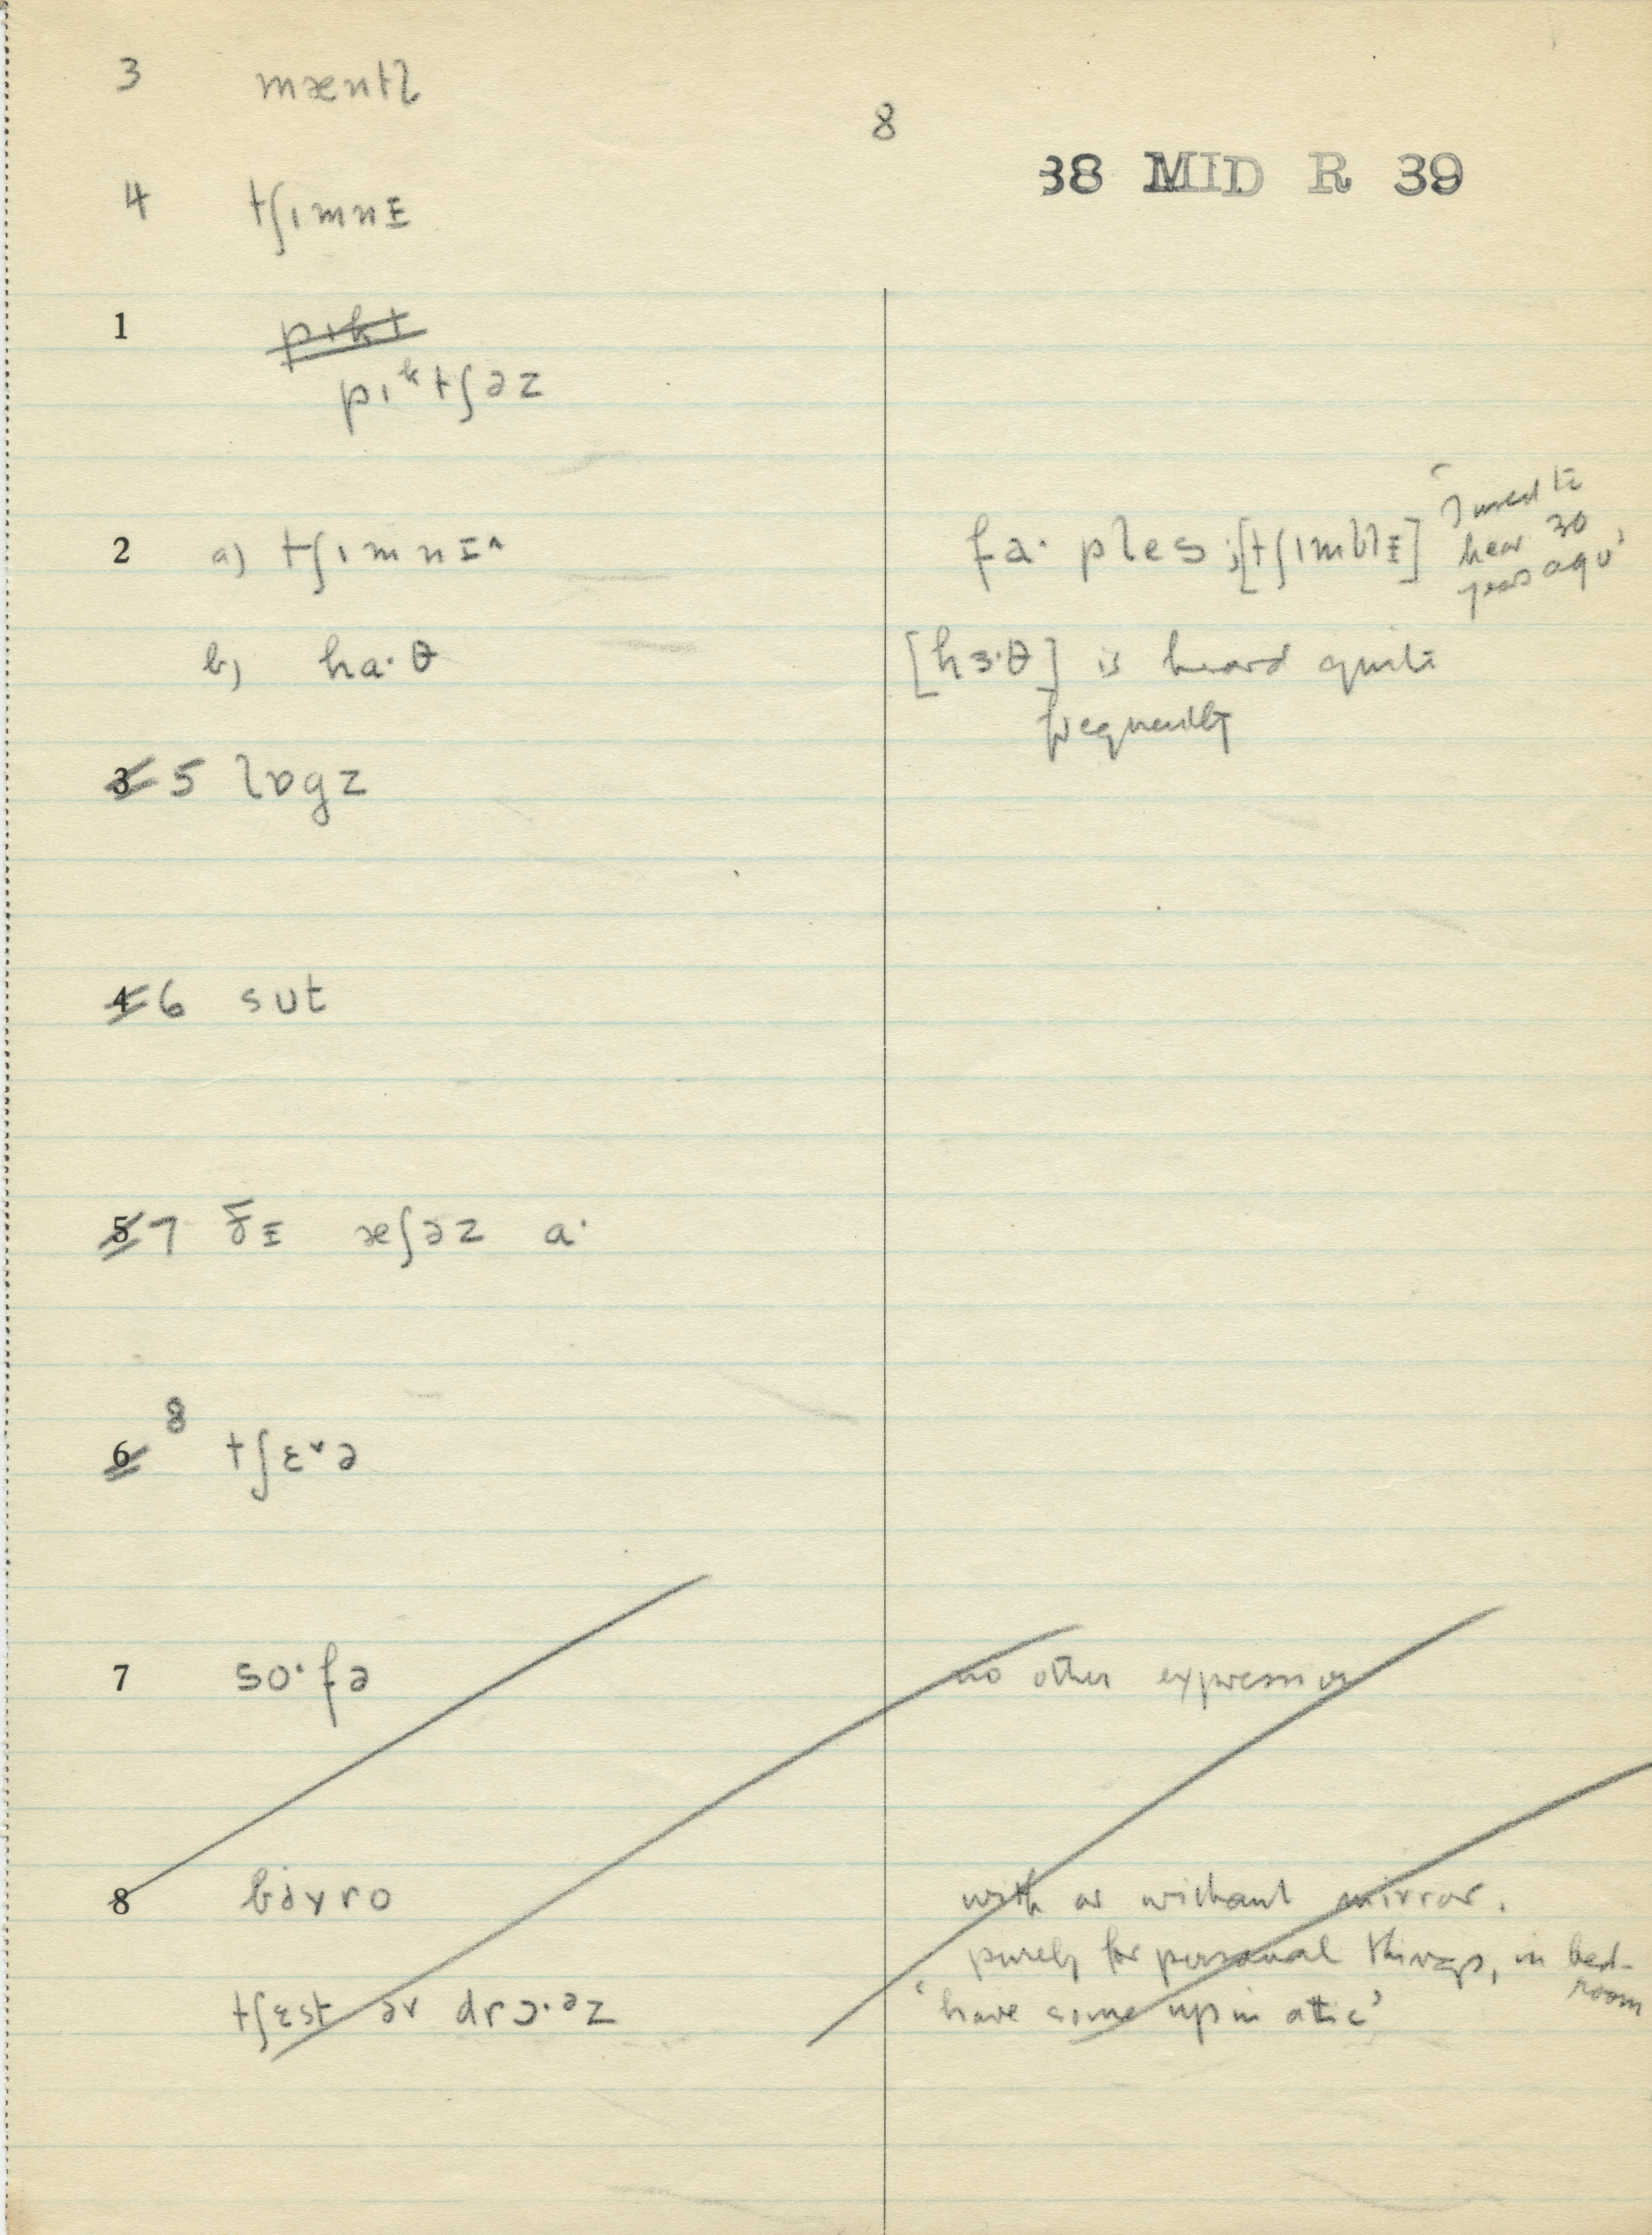 3 mæntl
8
38 MID R 39
4 tʃɪmnɪ
1 pɪkt
pɪᵏtʃəz
2 a) tʃɪmnɪ^ fa· ples ;[tʃɪmblɪ] 'I used to
hear 30
years ago'
b) ha·θ [hɜ·θ] is heard quite
frequently
3 5 lɒgz
4 6 sut
5 7 ðɪ æʃəz a·
8
6 tʃɛ˅ə
7 so·fə no other expression
8 bɨ̇ʏro with or without mirror.
purely for personal things, in bed-
room
tʃɛst əv drɔ·ᵊz 'have some up in attic'